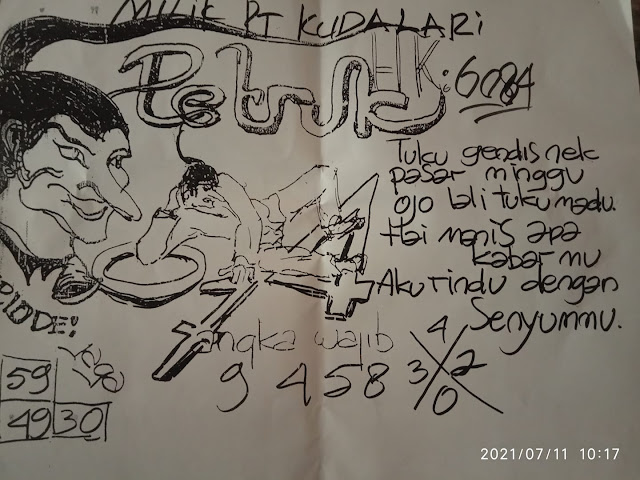 MILIK PT KUDALARI
Petruk
HK: 6084
Tuku gendis nek
pasar minggu
ojo lali tuku madu.
Hai manis apa
kabar mu
Aku rindu dengan
Senyummu.
PIODE!
angka wajib
9 4 5 8
4
3 2
0
59
49 30
2021/07/11 10:17